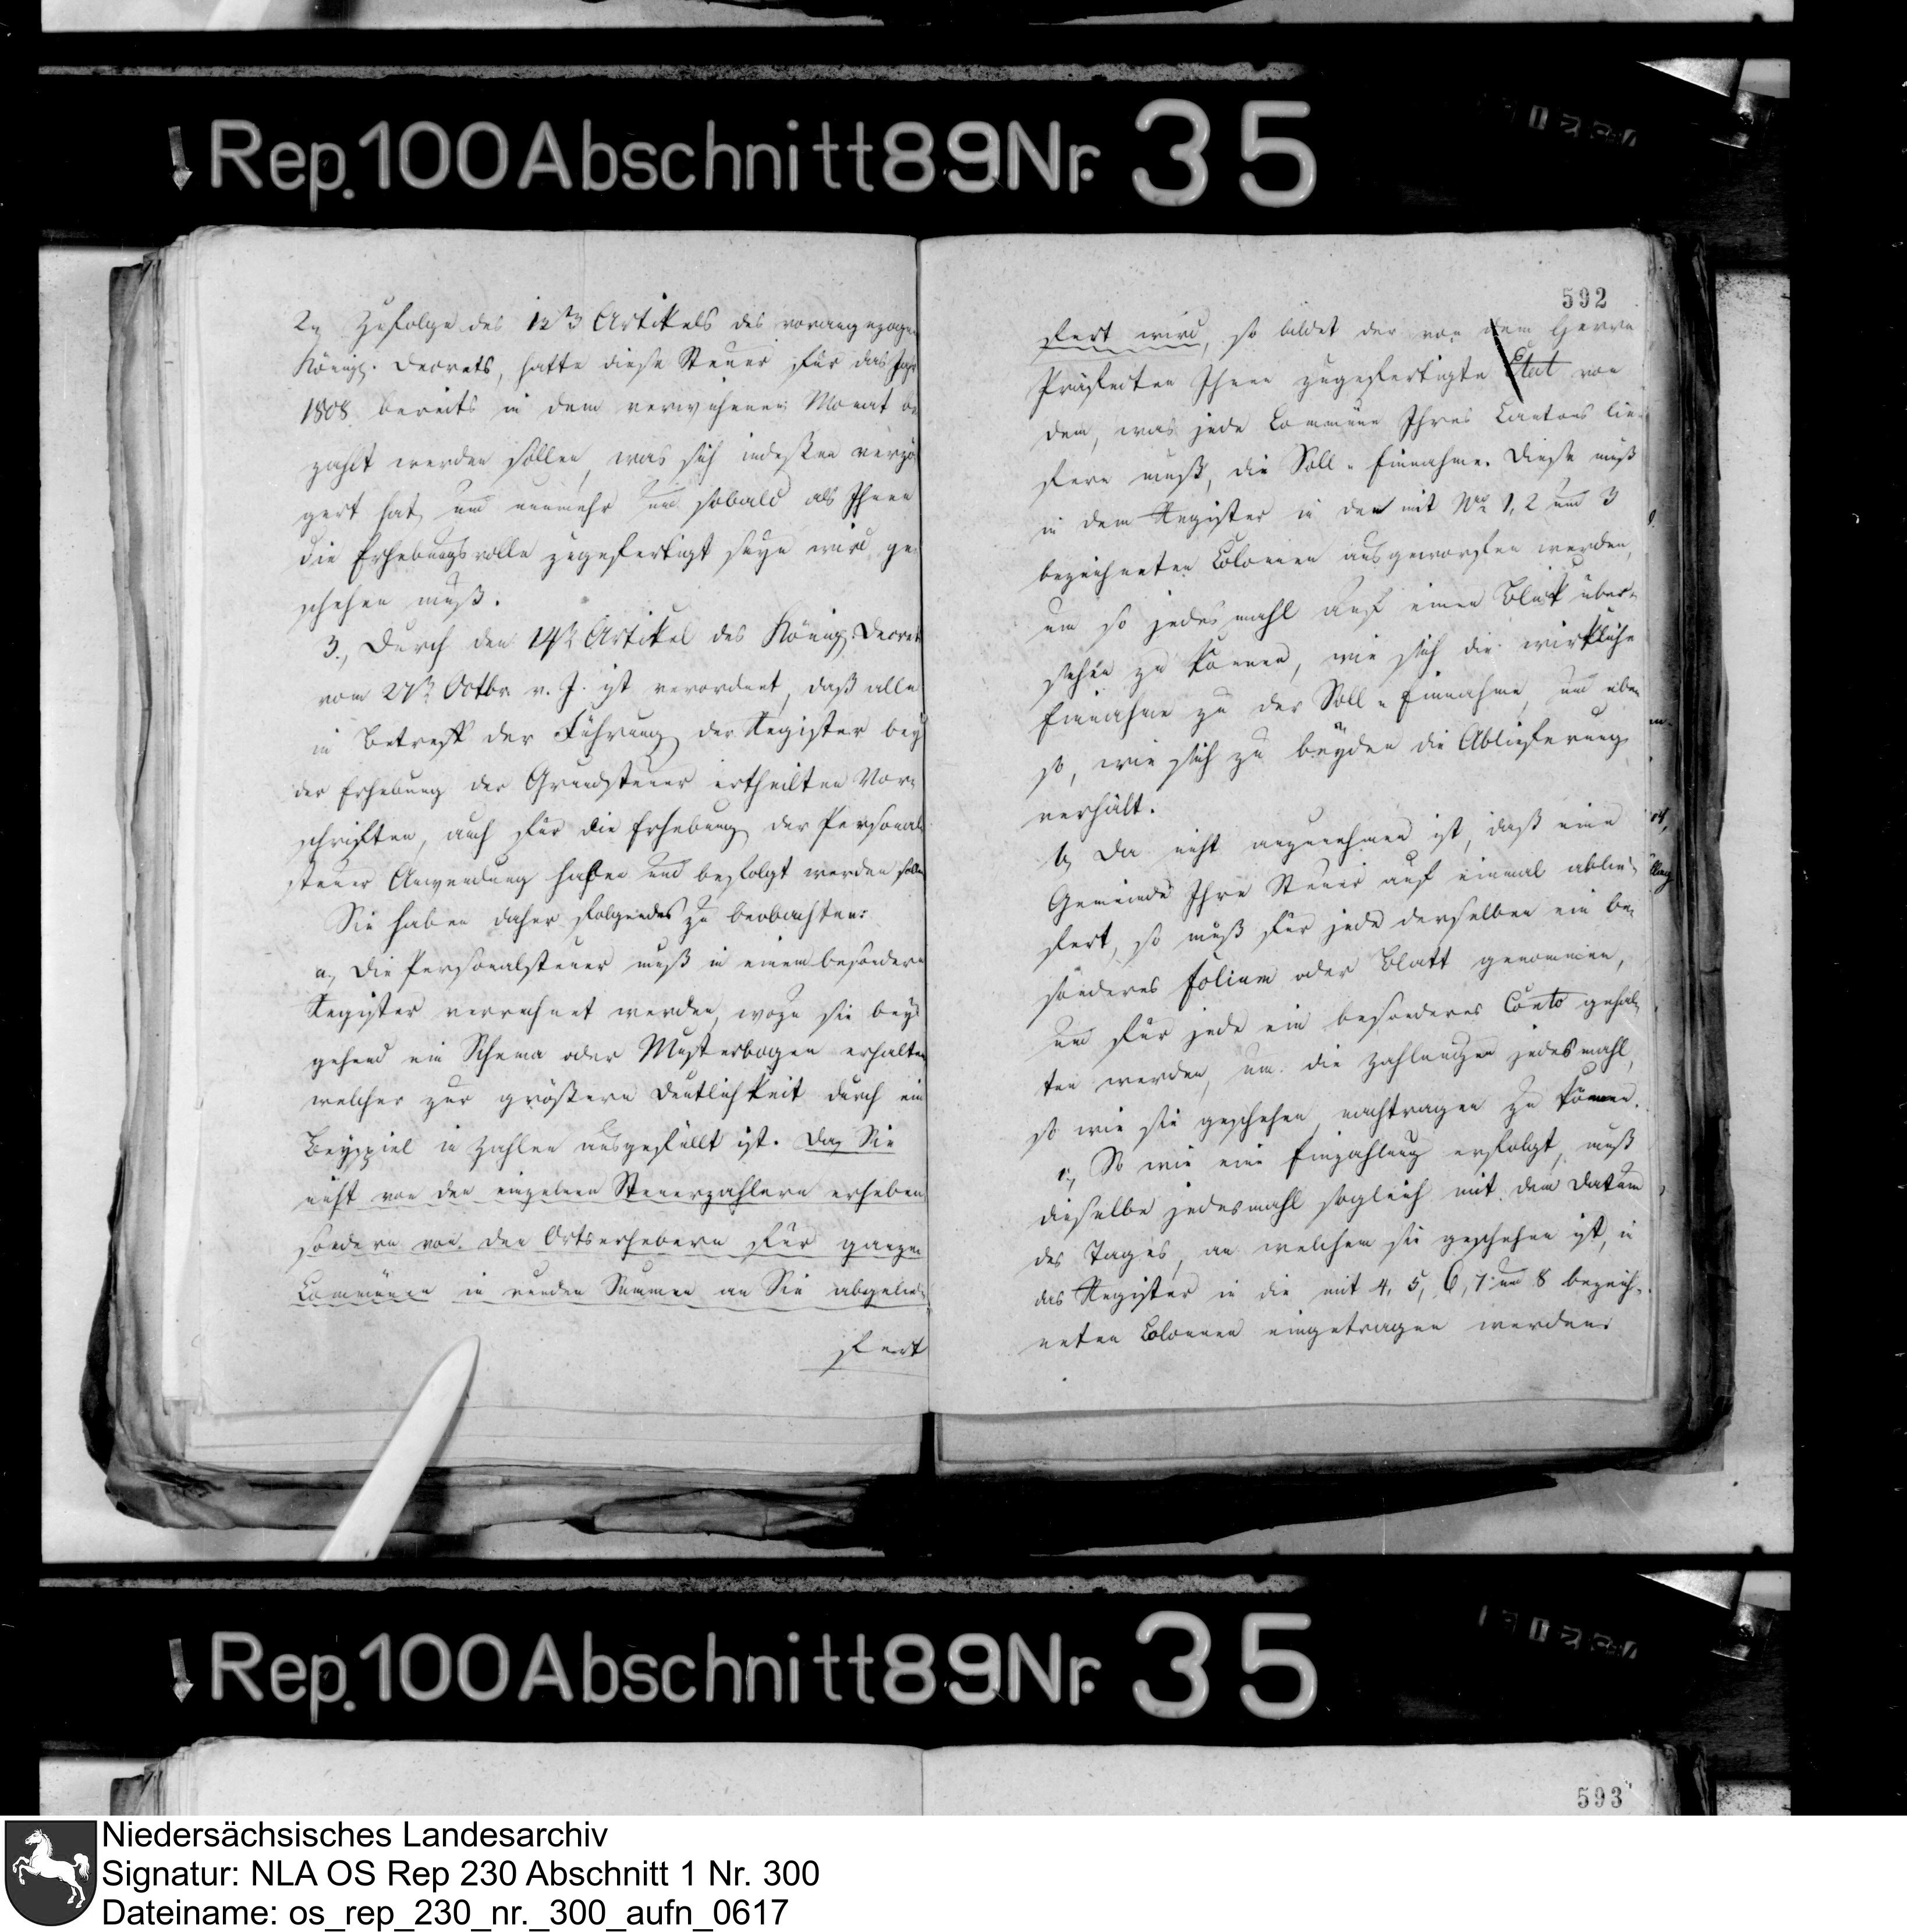 Rep. 100 Abschnitt 89 Nr. 35
2., Zufolge des 12t Artikels des vorangezogen
Königl. Decrets, hatte diese Steuer für das Jahr
1808. bereits in dem verwichenen Monat be
zahlt werden sollen, was sich indessen verzö
gert hat, und nunmehr und sobald als Ihnen
die Erhebungsrolle zugefertigt seyn wird, ge-
schehen muß.
3., Durch den 14t Artikel des Königl. Decret
vom 27t Octbr. v. J. ist verordnet, daß alle
in Betreff der Führung der Register bey
der Erhebung der Grundsteuer ertheilten Vor-
schriften, auch für die Erhebung der Personal
steuer Anwendung haben und befolgt werden sollen
Sie haben daher folgendes zu beobachten:
a., Die Personalsteuer muß in einem besondern
Register verrechnet werden, wozu sie bey-
gehend ein Schema oder Musterbogen erhalten
welcher zur größern Deutlichkeit durch ein
Beyspiel in Zahlen ausgefüllt ist. Da Sie
nicht von den einzelnen Steuerzahlern erheben
sondern von den Ortserhebern für ganzen
Communen in runden Summen an Sie abgelie-
fert
592
fert wird, so bildet der von dem Herrn
Präfecten Ihnen zugefertigte Etat von
dem, was jede Commune Ihres Cantons lie-
fern muß, die Soll-Einnahme. Diese muß
in dem Register in den mit Nro 1, 2 und 3
bezeichneten Colonnen ausgeworfen werden,
um so jedesmahl auf einen Blick über-
sehen zu können, wie sich die wirkliche
Einnahme zu der Soll-Einnahme, und eben
so, wie sich zu beyden die Ablieferung
verhält.
b., Da nicht anzunehmen ist, daß eine
Gemeinde Ihre Steuer auf einmal ablie-
fert, so muß für jede derselben ein be-
sonderes Folium oder Blatt genommen,
und für jede ein besonderes Conto gehal-
ten werden, um die Zahlungen jedesmahl,
so wie sie geschehen, nachtragen zu können.
c., So wie eine Einzahlung erfolgt, muß
dieselbe jedesmahl sogleich mit dem Datum
des Tages, an welchem sie geschehen ist, in
das Register in die mit 4, 5, 6, 7 und 8 bezeich-
neten Colonnen eingetragen werden.
Rep. 100 Abschnitt 89 Nr. 35
593
Niedersächsisches Landesarchiv
Signatur: NLA OS Rep 230 Abschnitt 1 Nr. 300
Dateiname: os_rep_230_nr._300_aufn_0617